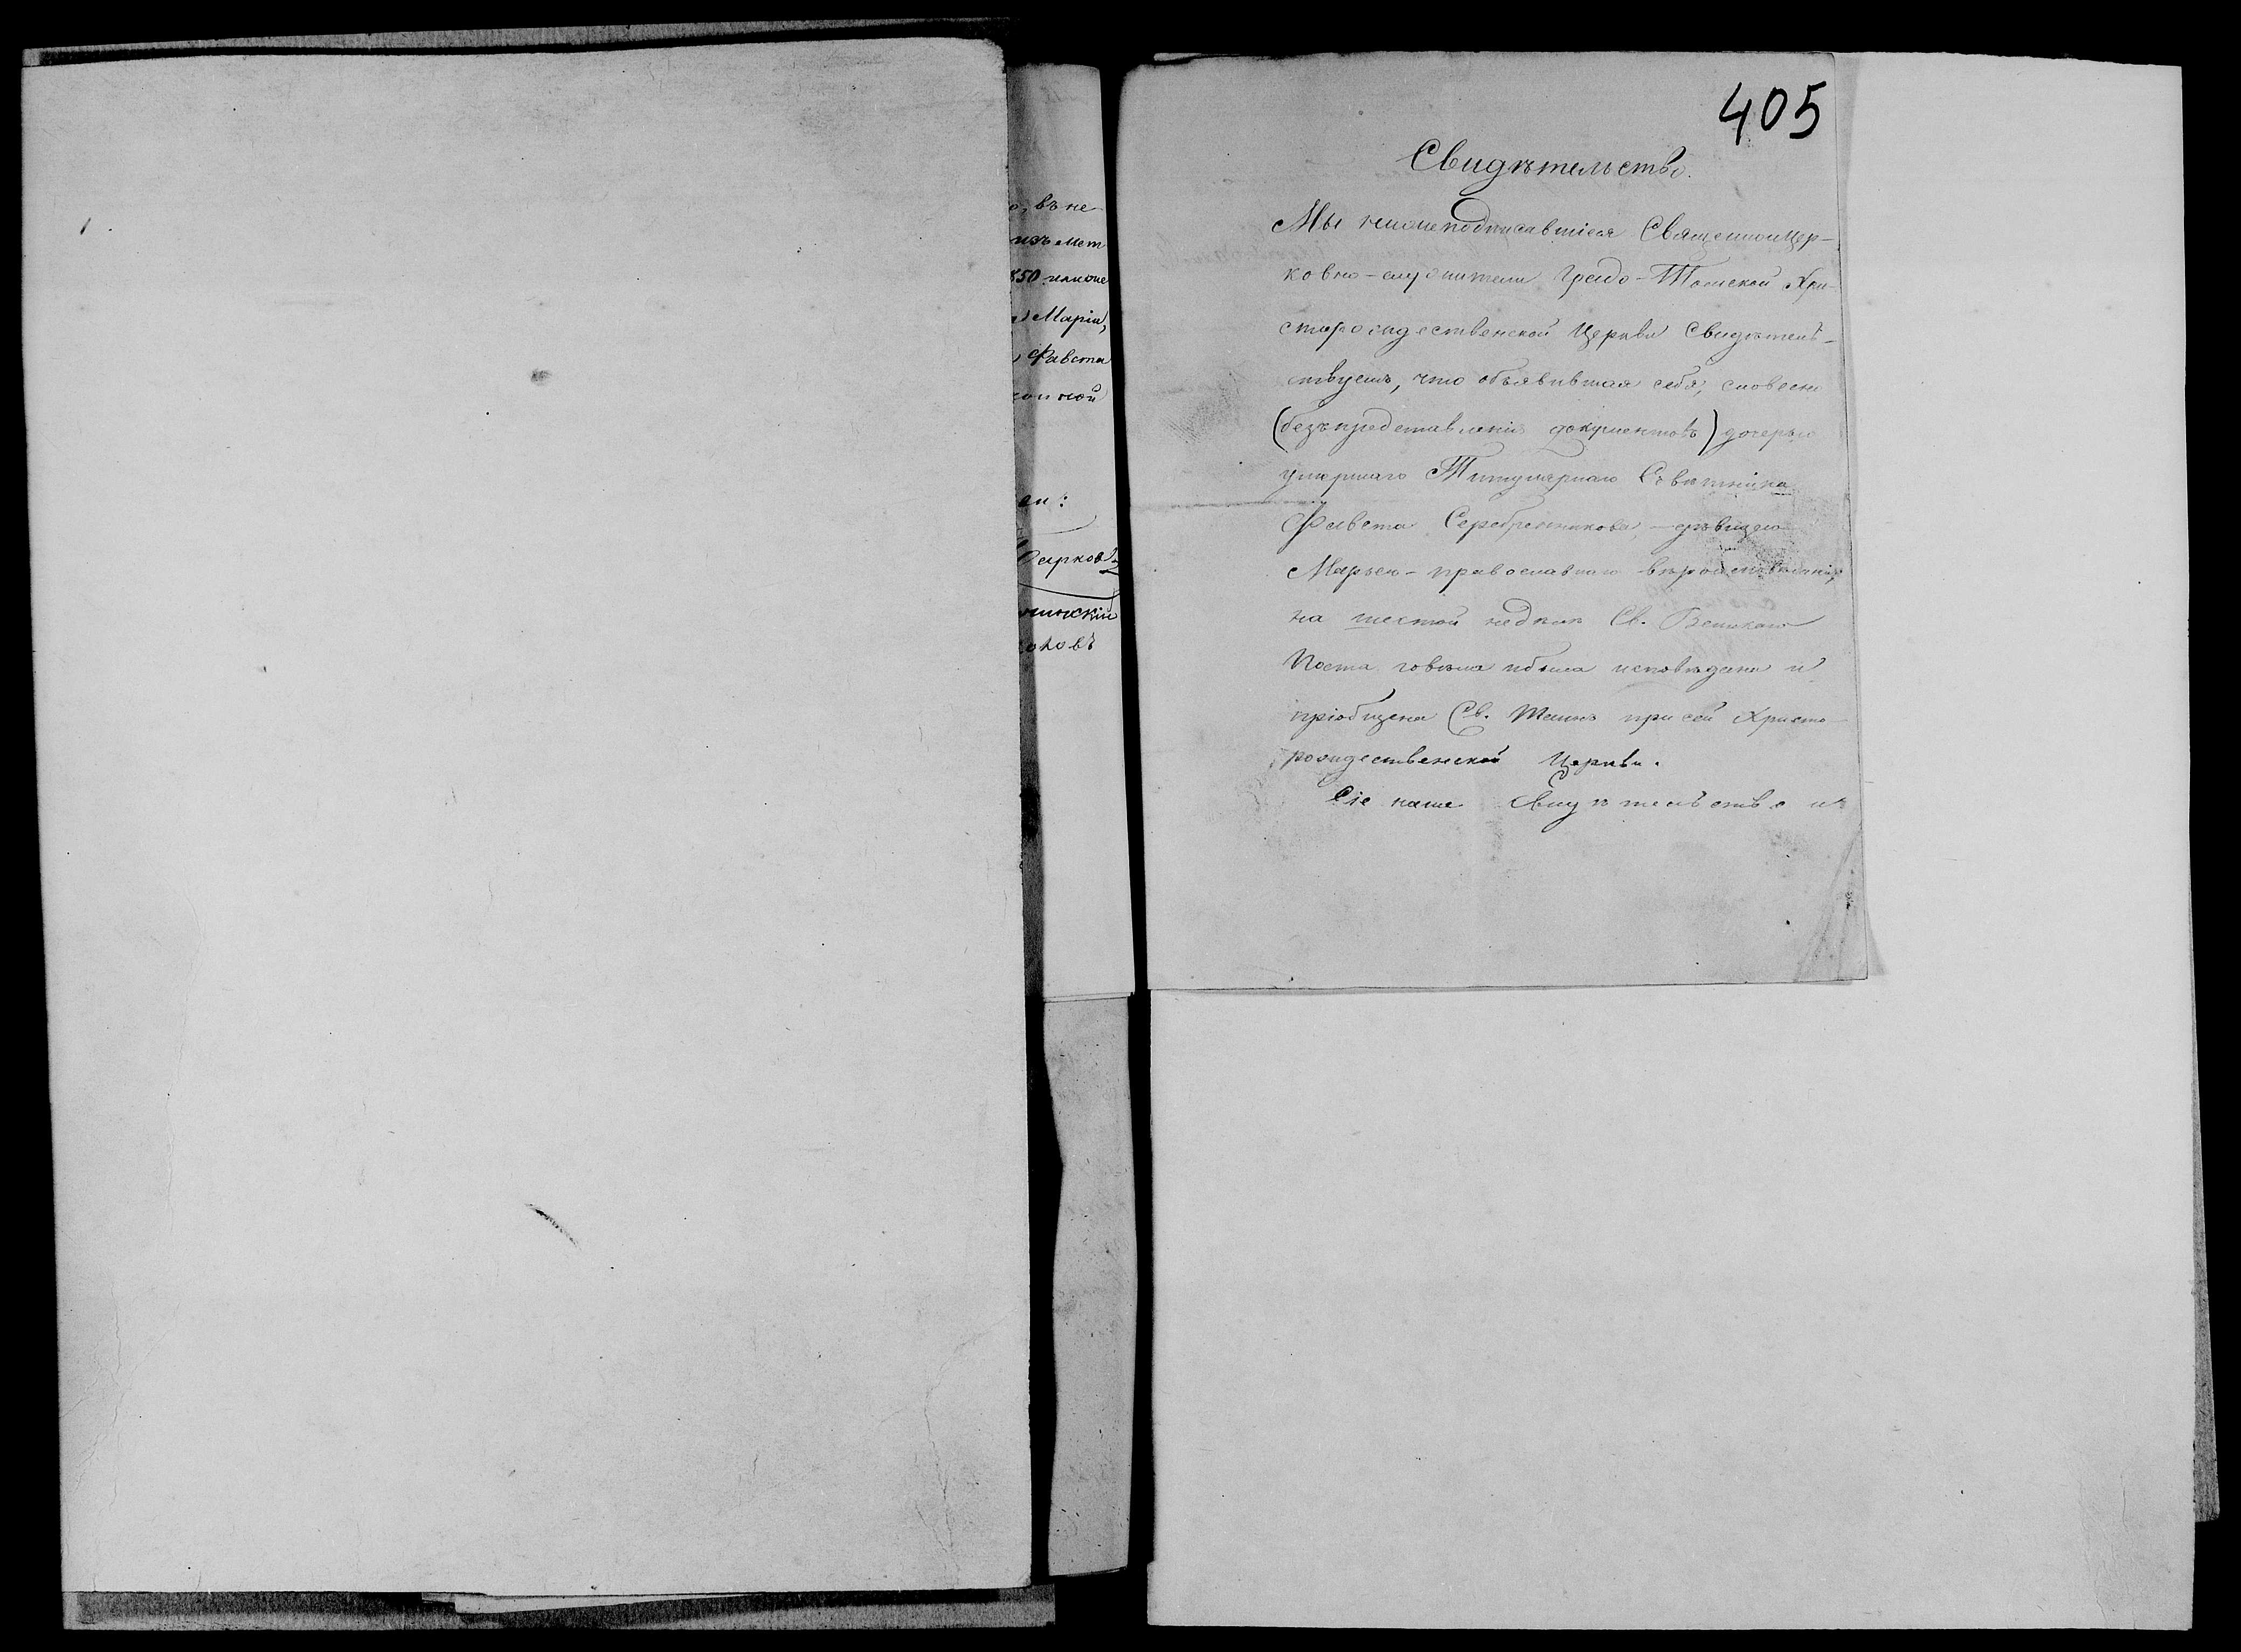 о, въ не-
изъ мет
850 и коне
Марiи,
Фавста
ен:
Парковъ
405
Свидѣтельство.
Мы нижеподписавшiеся Священноцер-
ковно-служители Градо-Томской Хри-
сторождественской Церкви свидѣтель-
ствуемъ, что объявившая себя, словесно
(безъ представленiя документовъ) дочерью
умершаго Титулярнаго Совѣтника
Фавста Серебренникова, - дѣвицею
Марьею - православнаго вѣроисповѣданiя,
на шестой недѣли Св. Великаго
Поста говѣла и была исповѣдана и
прiобщена Св. Таинъ при сей Христо-
рождественской Церкви.
Сiе наше свидѣтельство и